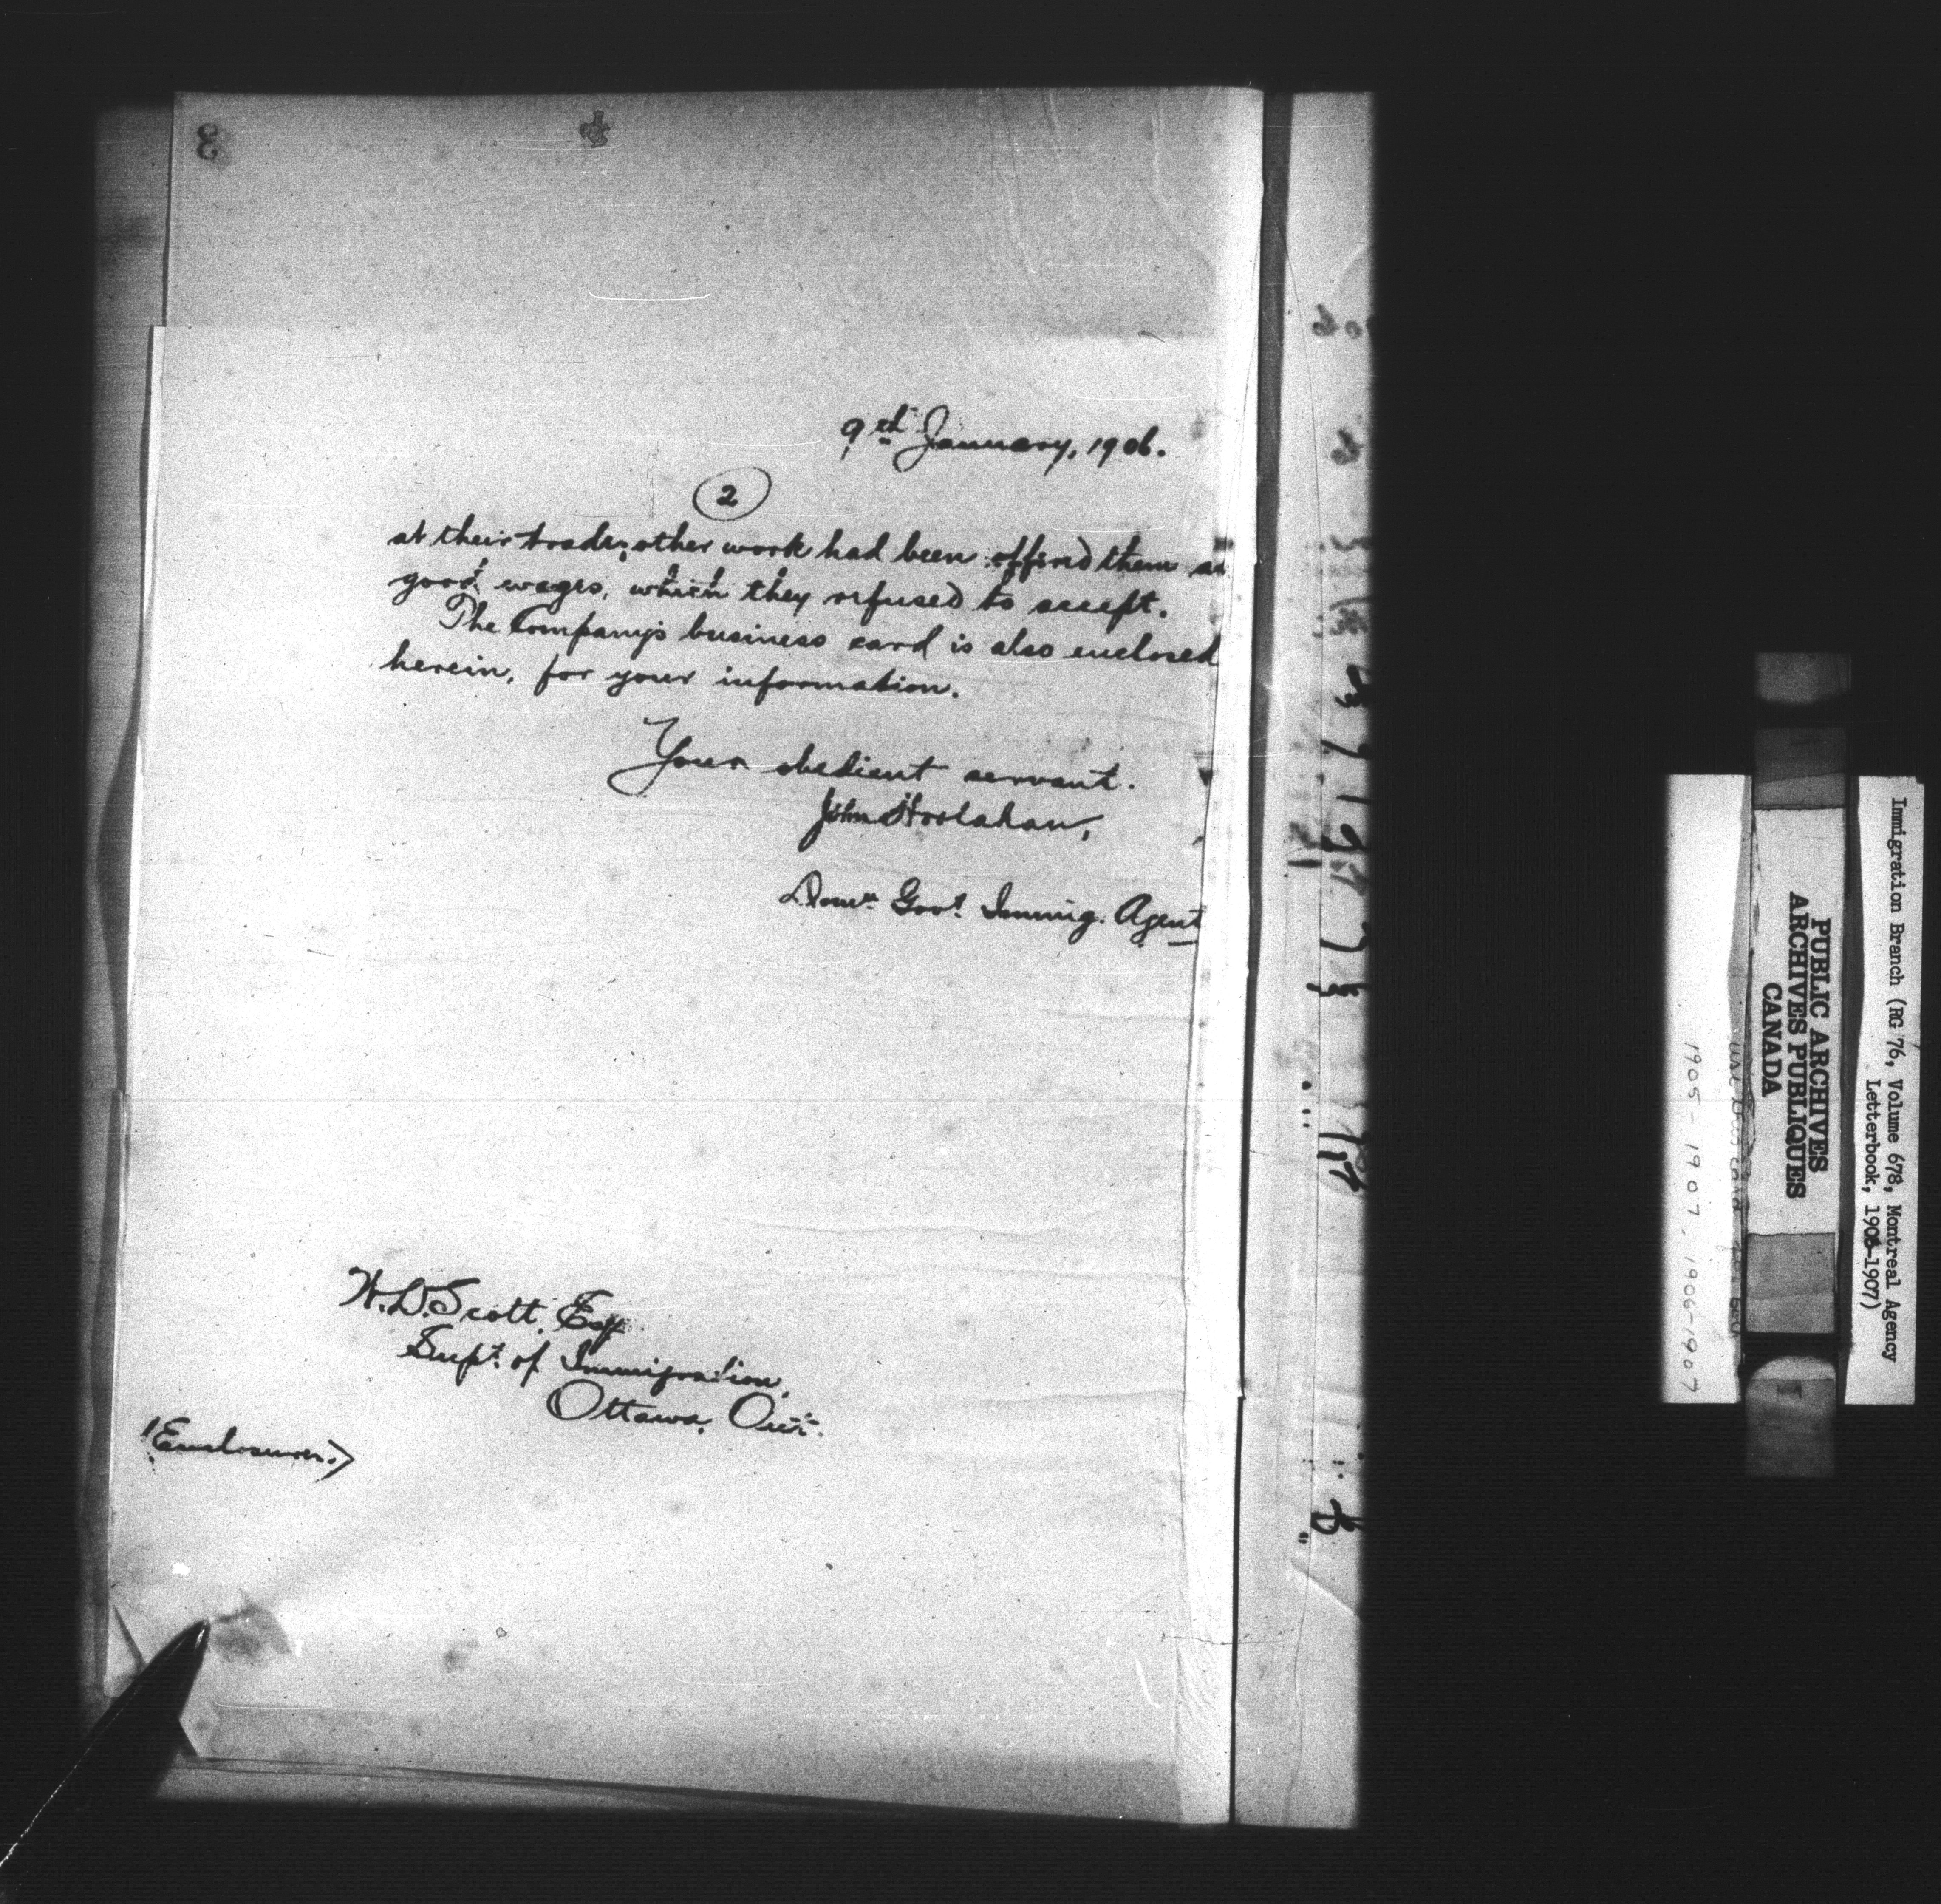 9th January, 1906.
2
at their trade; other work had been offered them at
good wages, which they refused to accept.
The Company's business card is also enclosed
herein, for your information.
Your obedient servant.
John Hoolahan,
Domn Govt. Immig. Agent
W.D. Scott, Esq
Supt. of Immigration,
Ottawa, Ont.
(Enclosures.)
Immigration Branch (RG 76, Volume 678, Montreal Agency
Letterbook, 1905-1907)
PUBLIC ARCHIVES
ARCHIVES PUBLIQUES
CANADA
1905-1907, 1906-1907